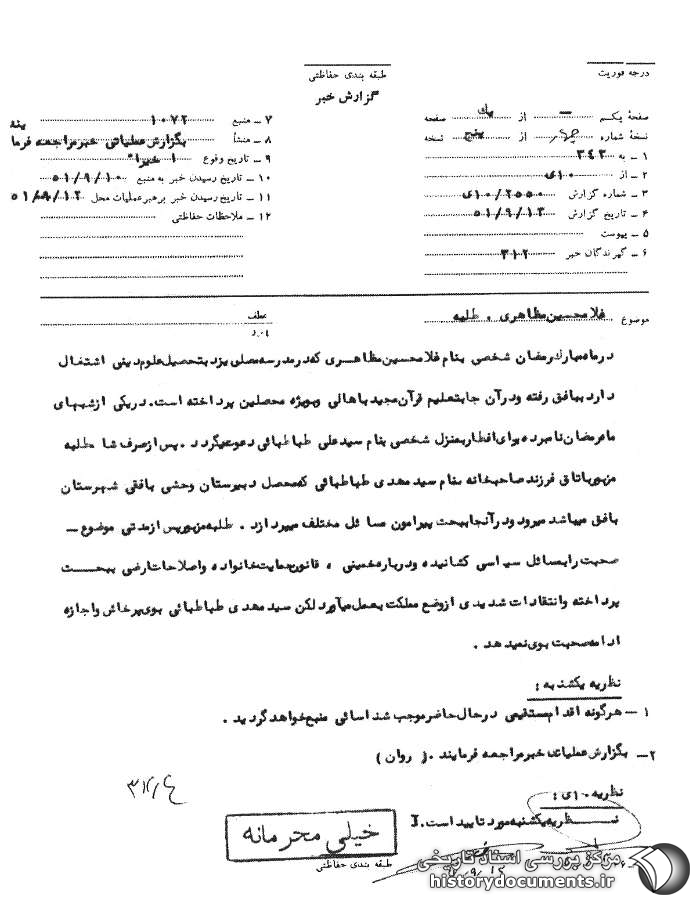 درجه فوریت
طبقه بندی حفاظتی
گزارش خبر
صفحهٔ یکم از یك صفحه
نسخهٔ شماره چهار از پنج نسخه
۱ ـ به ۳۴۳
۲ ـ از ۱۰ی
۳ ـ شماره گزارش ۲۵۵۰/۱۰ی
۴ ـ تاریخ گزارش ۵۱/۹/۱۳
۵ ـ پیوست
۶ ـ گیرندگان خبر ۳۱۲
۷ ـ منبع ۱۰۷۲
۸ ـ منشأ بگزارش عملیاتی خبر مراجعه فرما
یند
۹ ـ تاریخ وقوع اخیرا"
۱۰ ـ تاریخ رسیدن خبر به منبع ۵۱/۹/۱۰
۱۱ ـ تاریخ رسیدن خبر برهبر عملیات محل ۵۱/۹/۱۲
۱۲ ـ ملاحظات حفاظتی
موضوع غلامحسین مظاهری . طلبه
عطف
در ماه مبارك رمضان شخصی بنام غلامحسین مظاهری که در مدرسه مصلی یزد بتحصیل علوم دینی اشتغال
دارد ببافق رفته و در آن جا بتعلیم قرآن مجید باهالی وبویژه محصلین پرداخته است. در یکی از شبهای
ماه رمضان نامبرده برای افطار بمنزل شخصی بنام سید علی طباطبائی دعوت میگردد . پس از صرف شا م طلبه
مزبور باتاق فرزند صاحبخانه بنام سید مهدی طباطبائی که محصل دبیرستان وحشی بافقی شهرستان
بافق میباشد میرود و در آنجا ببحث پیرامون مسا ئل مختلف میپردازد . طلبه مزبور پس از مدتی موضوع ـ
صحبت را بمسائل سیاسی کشانیده و درباره خمینی ، قانون حمایت خانواده واصلاحات ارضی ببحث
پرداخته وانتقادات شدیدی از وضع مملکت بعمل میآورد لکن سید مهدی طباطبائی بوی پرخاش واجازه
ادامه صحبت بوی نمیدهد .
نظریه یکشنبه :
۱ ـ هرگونه اقدام مستقیمی در حال حاضر موجب شناسائی منبع خواهد گردید .
۲ ـ بگزارش عملیات خبر مراجعه فرمایند . ( روان )
نظریه ۱۰ی :
نظریه یکشنبه مورد تایید است.
خیلی محرمانه
طبقه بندی حفاظتی
مرکز بررسی اسناد تاریخی
historydocuments.ir